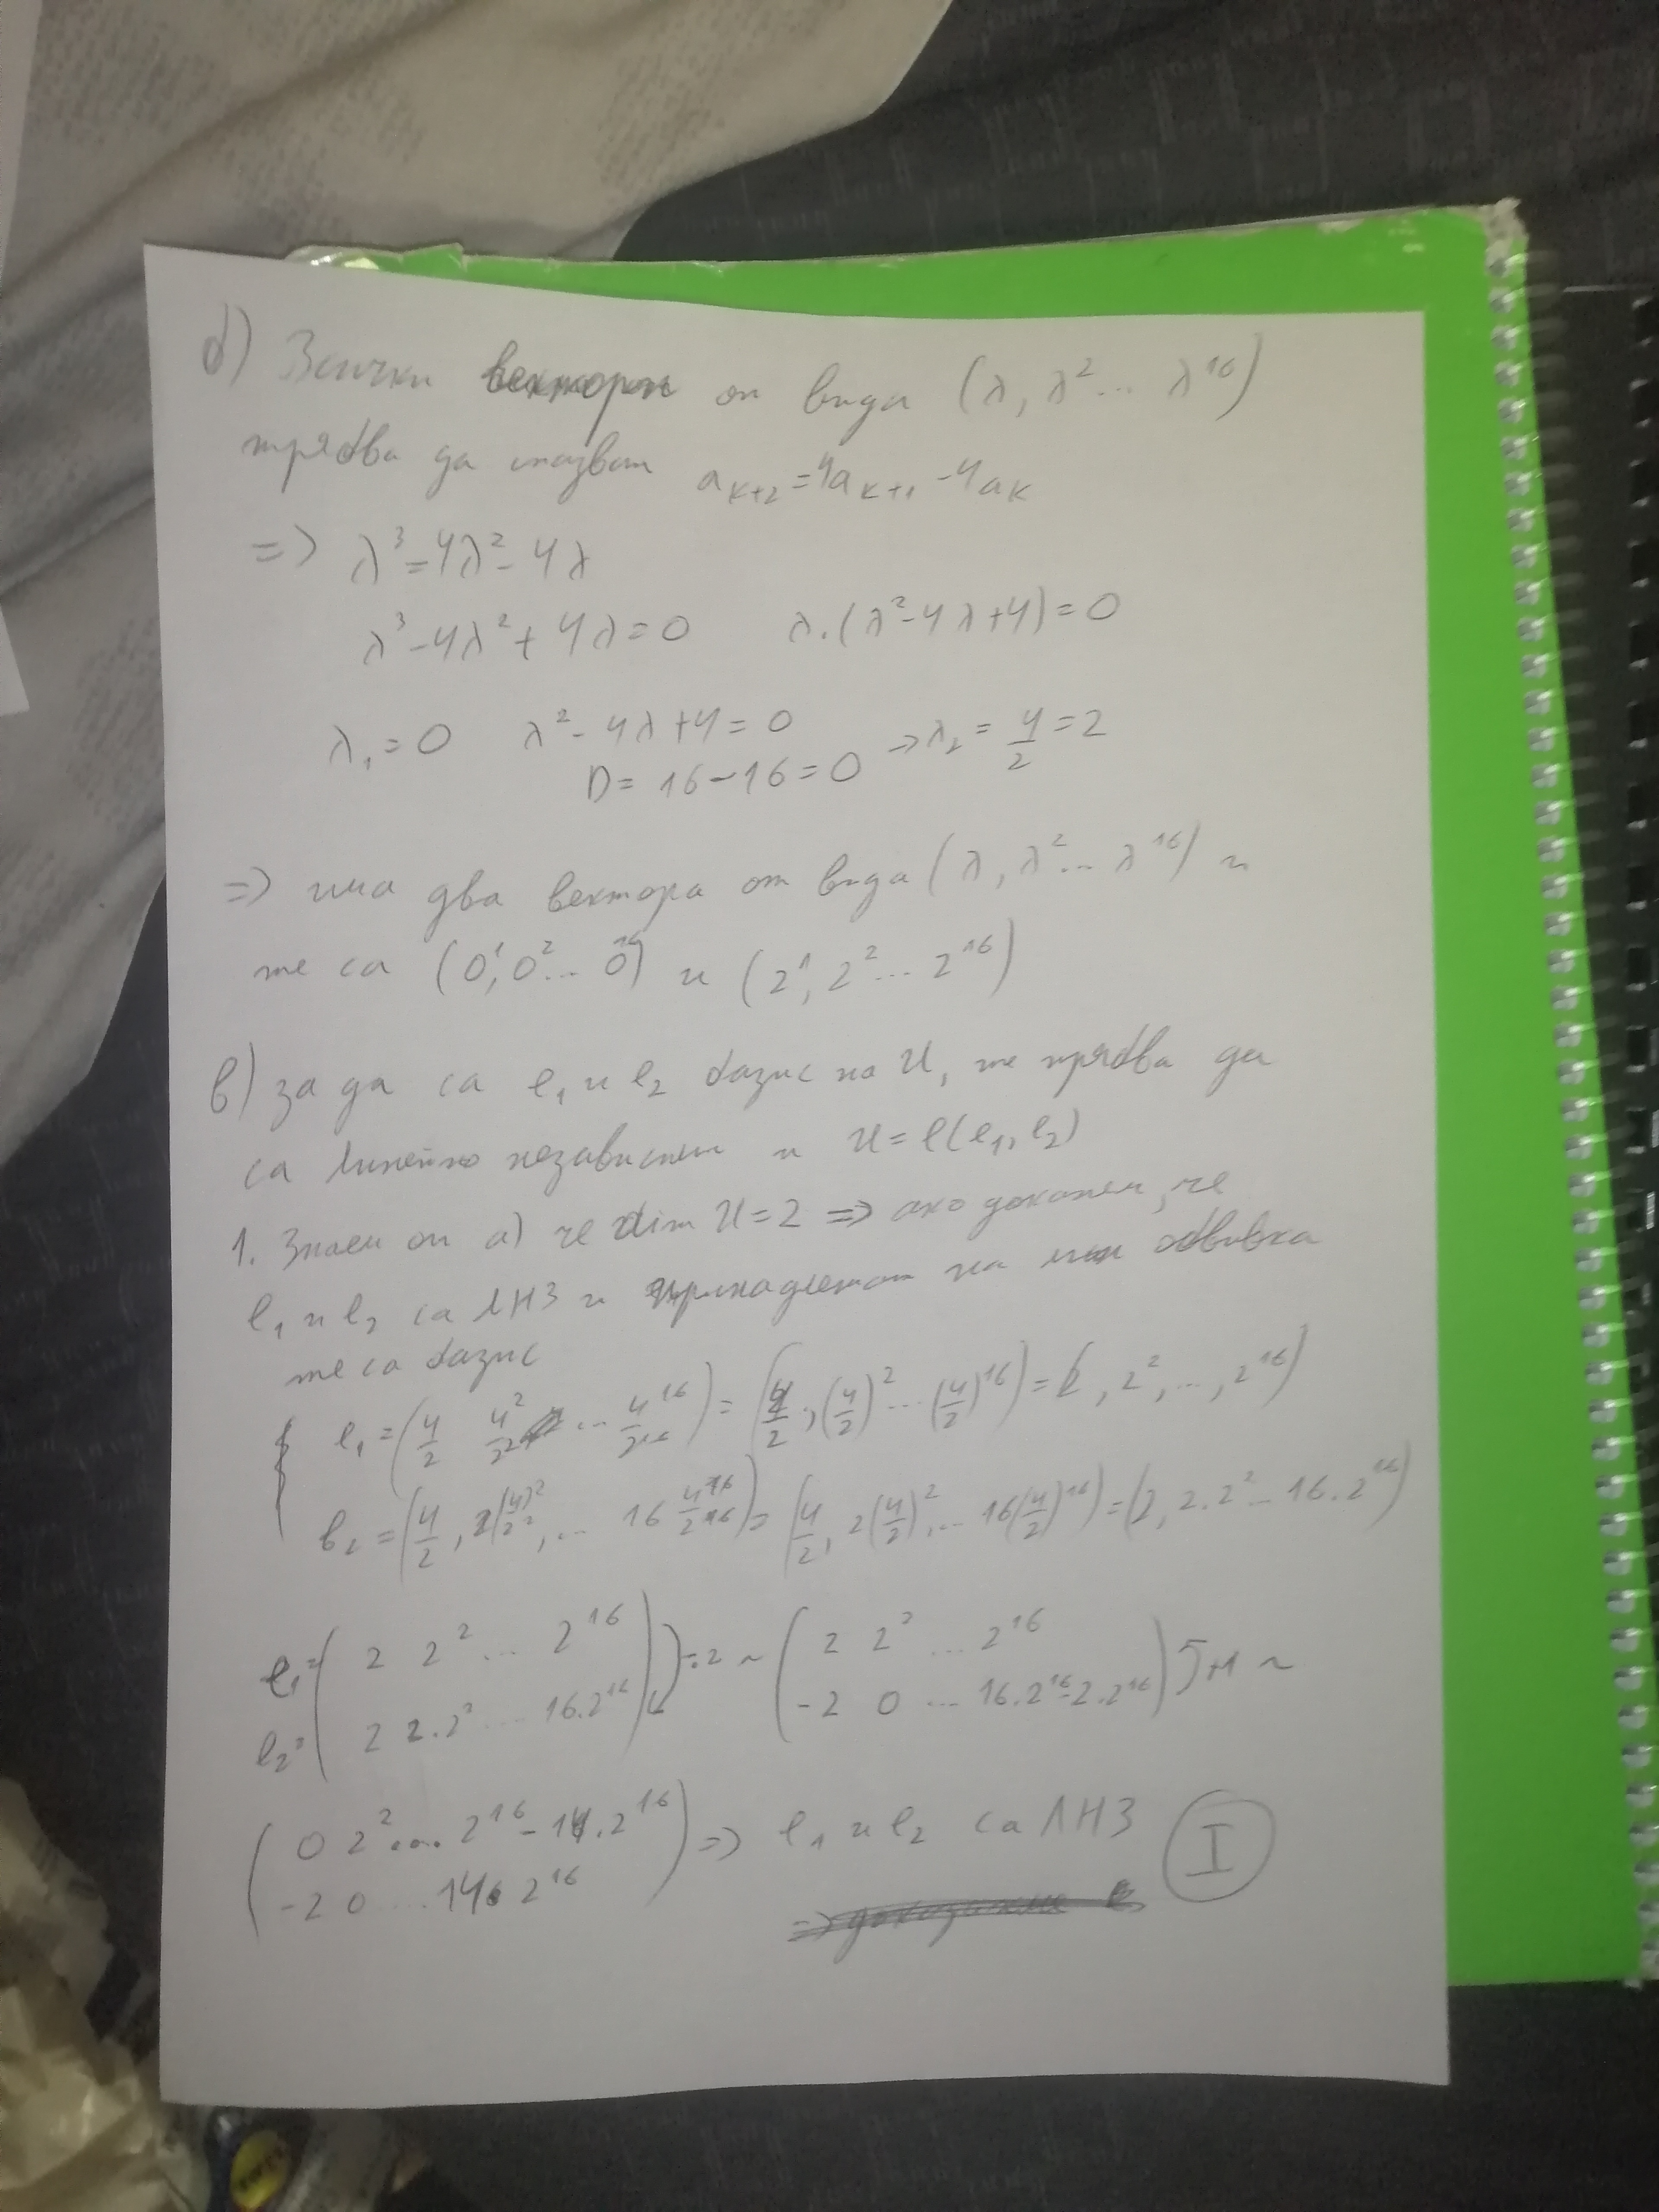 б) Всички вектори от вида (λ, λ² ... λ¹⁶)
трябва да спазват aₖ₊₂ = 4aₖ₊₁ - 4aₖ
=> λ³ = 4λ² - 4λ
λ³ - 4λ² + 4λ = 0 λ.(λ² - 4λ + 4) = 0
λ₁ = 0 λ² - 4λ + 4 = 0
D = 16 - 16 = 0 => λ₂ = 4/2 = 2
=> има два вектора от вида (λ, λ² ... λ¹⁶) и
те са (0¹, 0² ... 0¹⁶) и (2¹, 2² ... 2¹⁶)
в) за да са e₁ и e₂ базис на U, те трябва да
са линейно независими и U = ℓ(e₁, e₂)
1. Знаем от а) че dim U = 2 => ако докажем, че
e₁ и e₂ са ЛНЗ и принадлежат на лин обвивка
те са базис
e₁ = (4/2 4²/2² ... 4¹⁶/2¹⁶) = (4/2, (4/2)² ... (4/2)¹⁶) = (2, 2², ..., 2¹⁶)
e₂ = (4/2, 2(4)²/2², ... 16 4¹⁶/2¹⁶) = (4/2, 2(4/2)², ... 16(4/2)¹⁶) = (2, 2.2² ... 16.2¹⁶)
e₁ = ( 2 2² ... 2¹⁶ ) :2 ~ ( 2 2² ... 2¹⁶ )
e₂ = ( 2 2.2² ... 16.2¹⁶ ) ( -2 0 ... 16.2¹⁶-2.2¹⁶ ) ~
( 0 2² ... 2¹⁶ - 14.2¹⁶ ) => e₁ и e₂ са ЛНЗ I
( -2 0 ... 14.2¹⁶ )